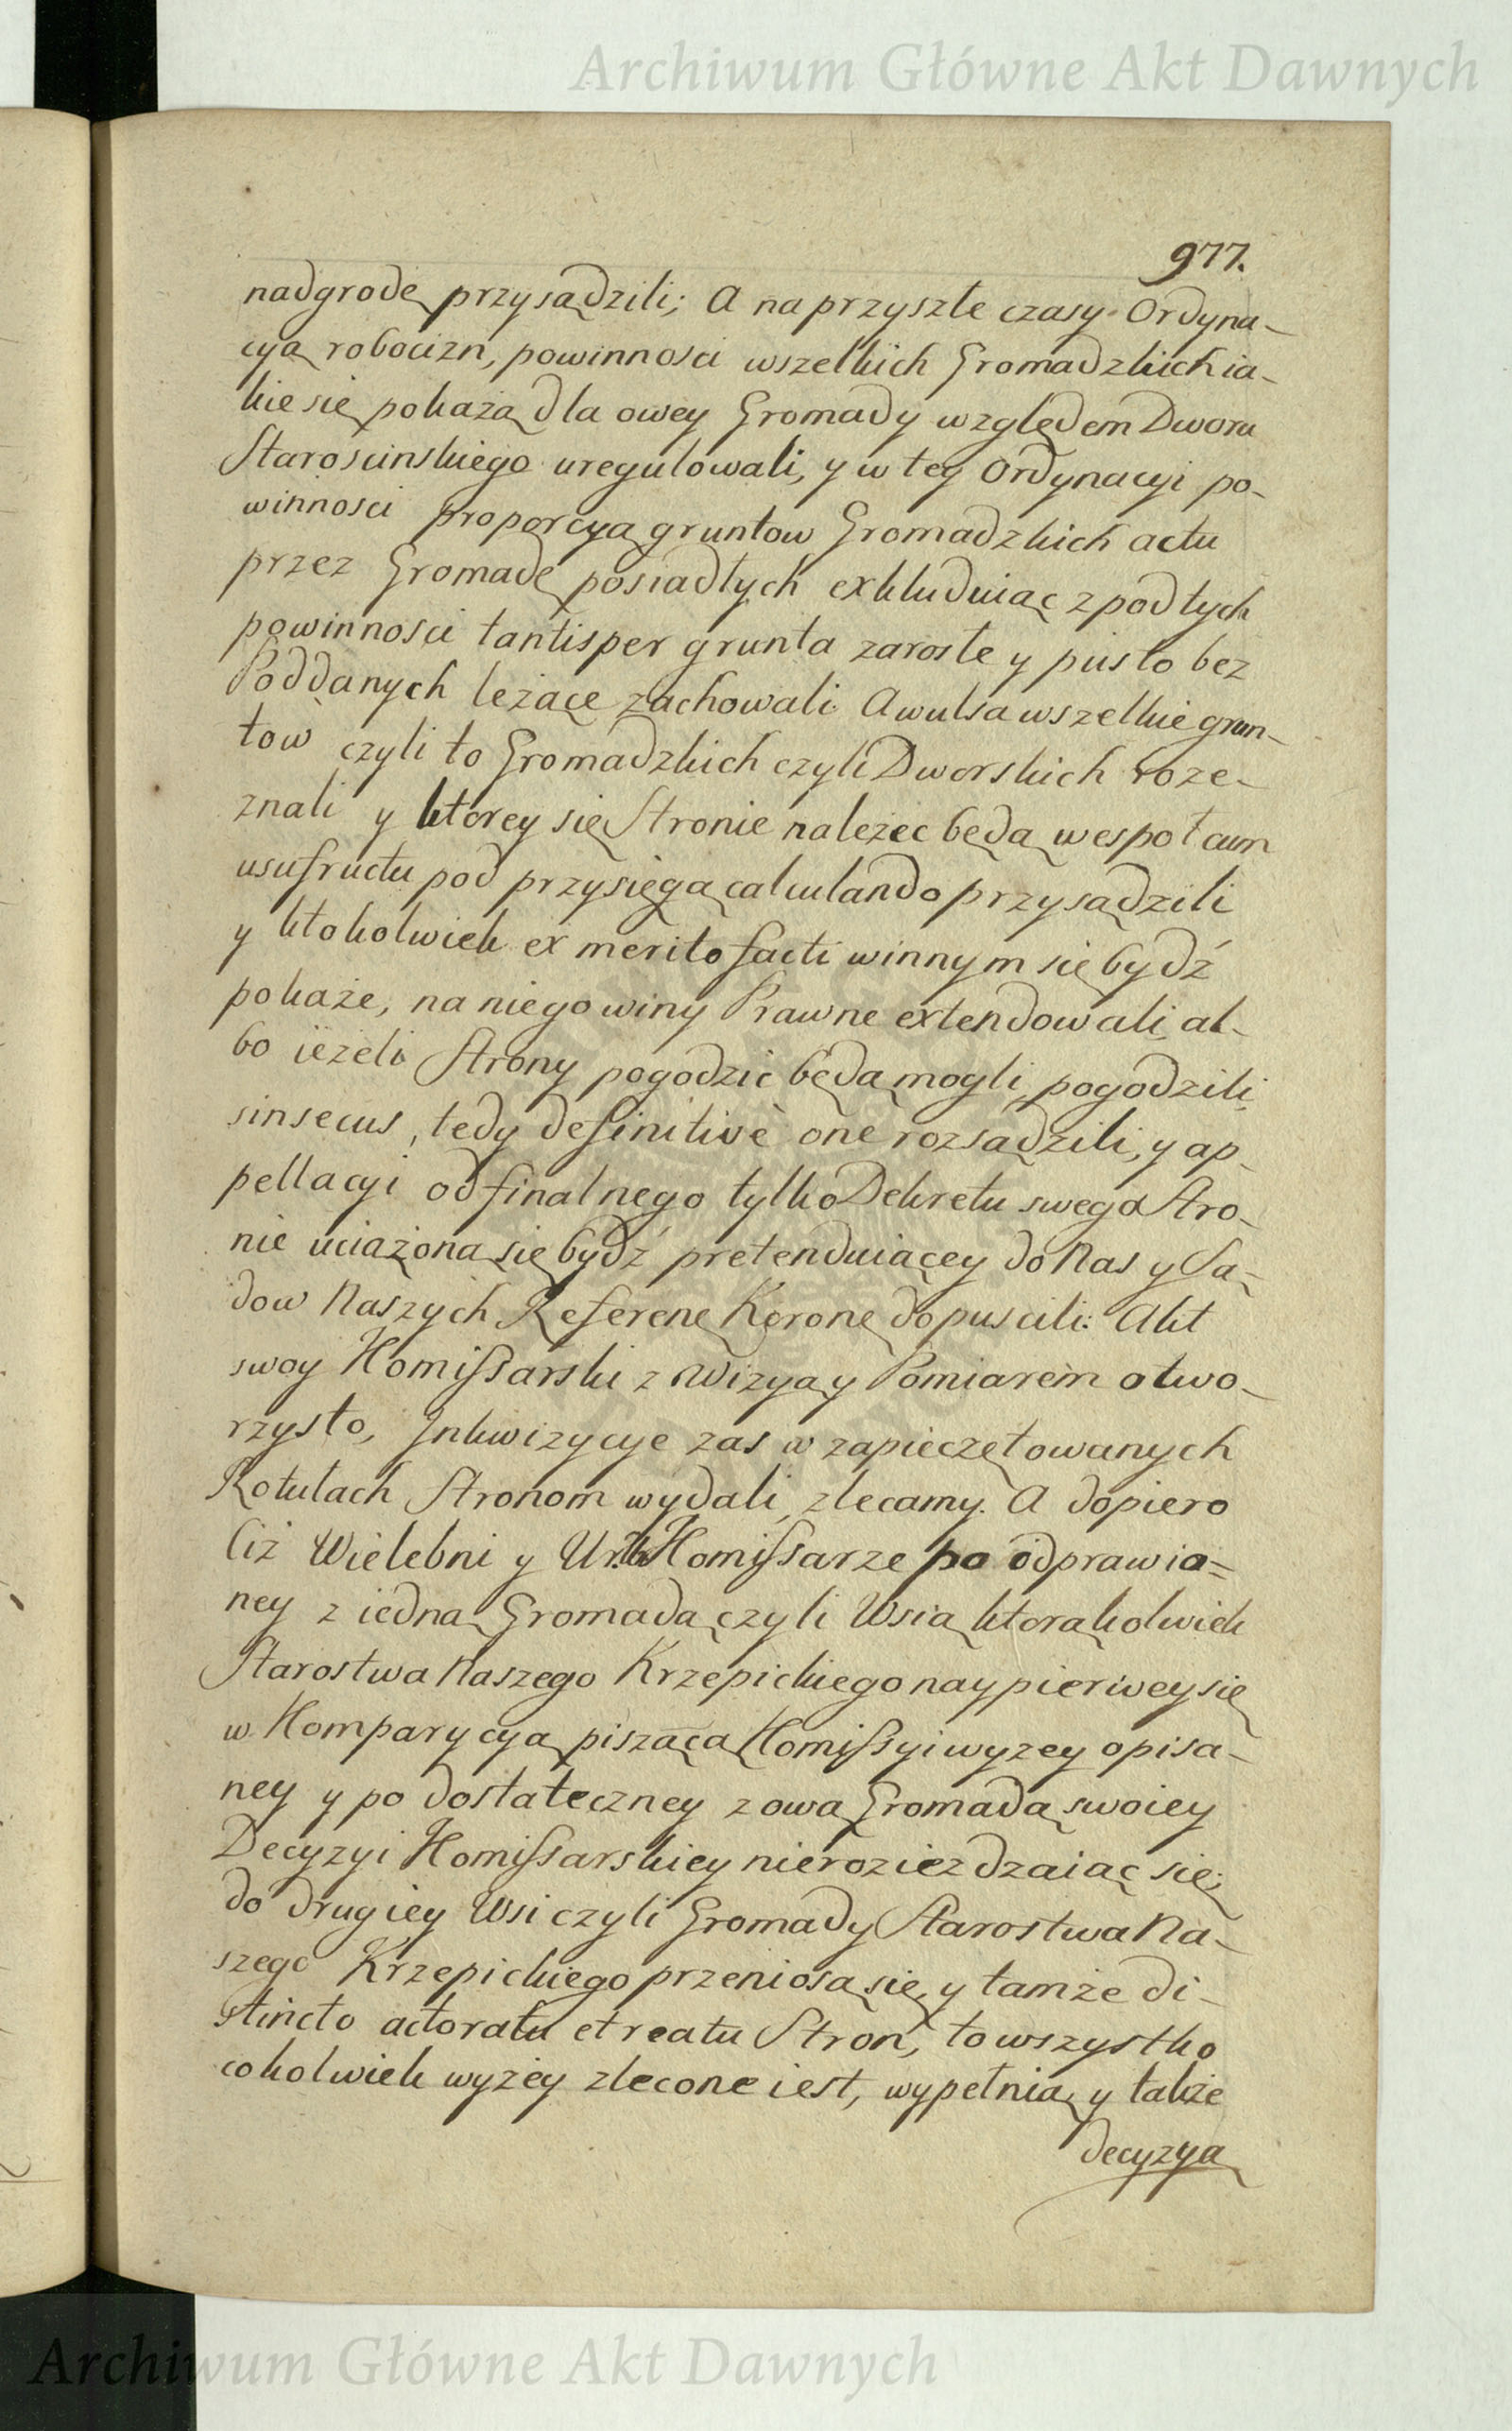 Archiwum Główne Akt Dawnych
977.
nadgrodę przysądzili; A na przyszłe czasy Ordyna-
cyą robocizn, powinnosci wszelkich Gromadzkich ia-
kie się pokażą dla owey Gromady względem Dworu
Staroscinskiego uregulowali, y w tey Ordynacyi po-
winnosci proporcyą gruntow Gromadzkich actu
przez Gromadę posiadłych exkluduiąc z pod tych
powinnosci tantisper grunta zarosłe y pusto bez
Poddanych leżące zachowali. Awulsa wszelkie grun-
tow czyli to Gromadzkich czyli Dworskich roze-
znali y ktorey się Stronie należec będą wespoł cum
usufructu pod przysięgą calculando przysądzili
y ktokolwiek ex merito facti winnym się bydź
pokaże, na niego winy Prawne extendowali, al-
bo ieżeli Strony pogodzic będą mogli, pogodzili,
sinsecus, tedy definitivè one rozsądzili, y ap-
pellacyi od finalnego tylko Dekretu swego Stro-
nie uciążoną się bydź pretenduiącey do Nas y Są-
dow Naszych Referen. Koron. dopuscili: Akt
swoy Kommissarski z Wizyą y Pomiarem otwo-
rzysto, Inkwizycye zas w zapieczętowanych
Rotułach Stronom wydali, zlecamy. A dopiero
Ciż Wielebni y Ur. Komissarze po odprawio=
ney z iedną Gromadą czyli Wsią ktorąkolwiek
Starostwa Naszego Krzepickiego naypierwey się
w Komparycyą piszącą Komissyi wyzey opisa-
ney y po dostateczney z ową Gromadą swoiey
Decyzyi Komissarskiey nierozieżdzaiąc się,
do drugiey Wsi czyli Gromady Starostwa Na-
szego Krzepickiego przeniosą się, y tamże di-
stincto actoratu et reatu Stron, to wszystko
cokolwiek wyżey zlecone iest, wypełnią, y także
decyzyą
Archiwum Główne Akt Dawnych